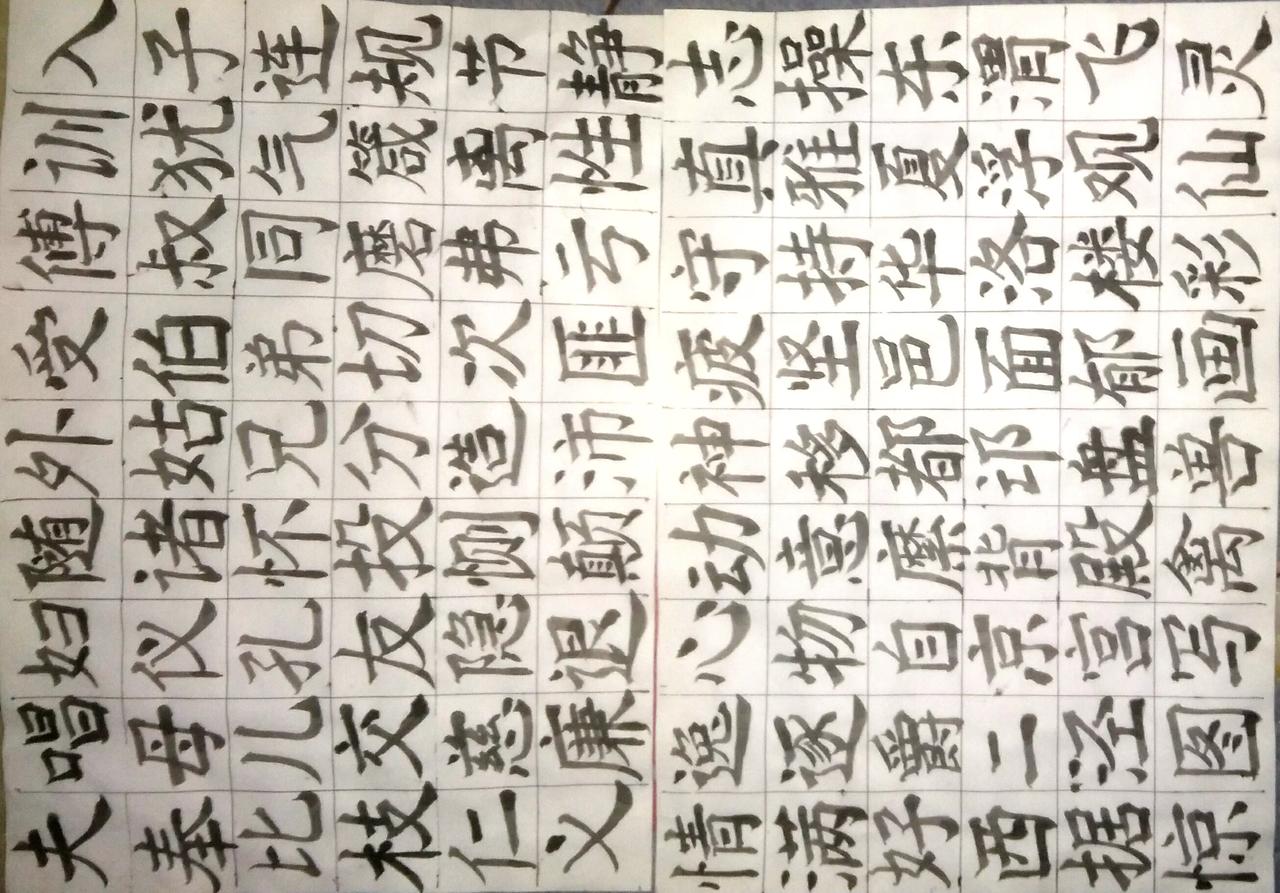 夫唱妇随外受傅训入
奉母仪诸姑伯叔犹子
比儿孔怀兄弟同气连
枝交友投分切磨箴规
仁慈隐恻造次弗离节
义廉退颠沛匪亏性静
情逸心动神疲守直志
满逐物意移坚持雅操
好爵自縻都邑华夏东
西二京背邙面洛浮渭
据泾宫殿盘郁楼观飞
惊图写禽兽画彩仙灵